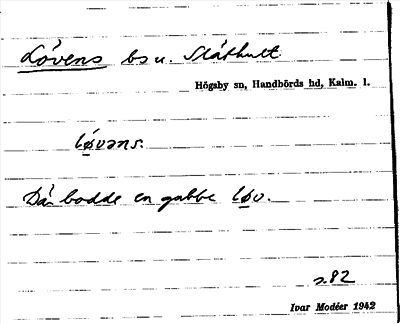 Lövens bs u. Släthult
Högsby sn, Handbörds hd, Kalm. l.
lǿ̱vəns.
Där bodde en gubbe lø̱v.
s. 82
Ivar Modéer 1942